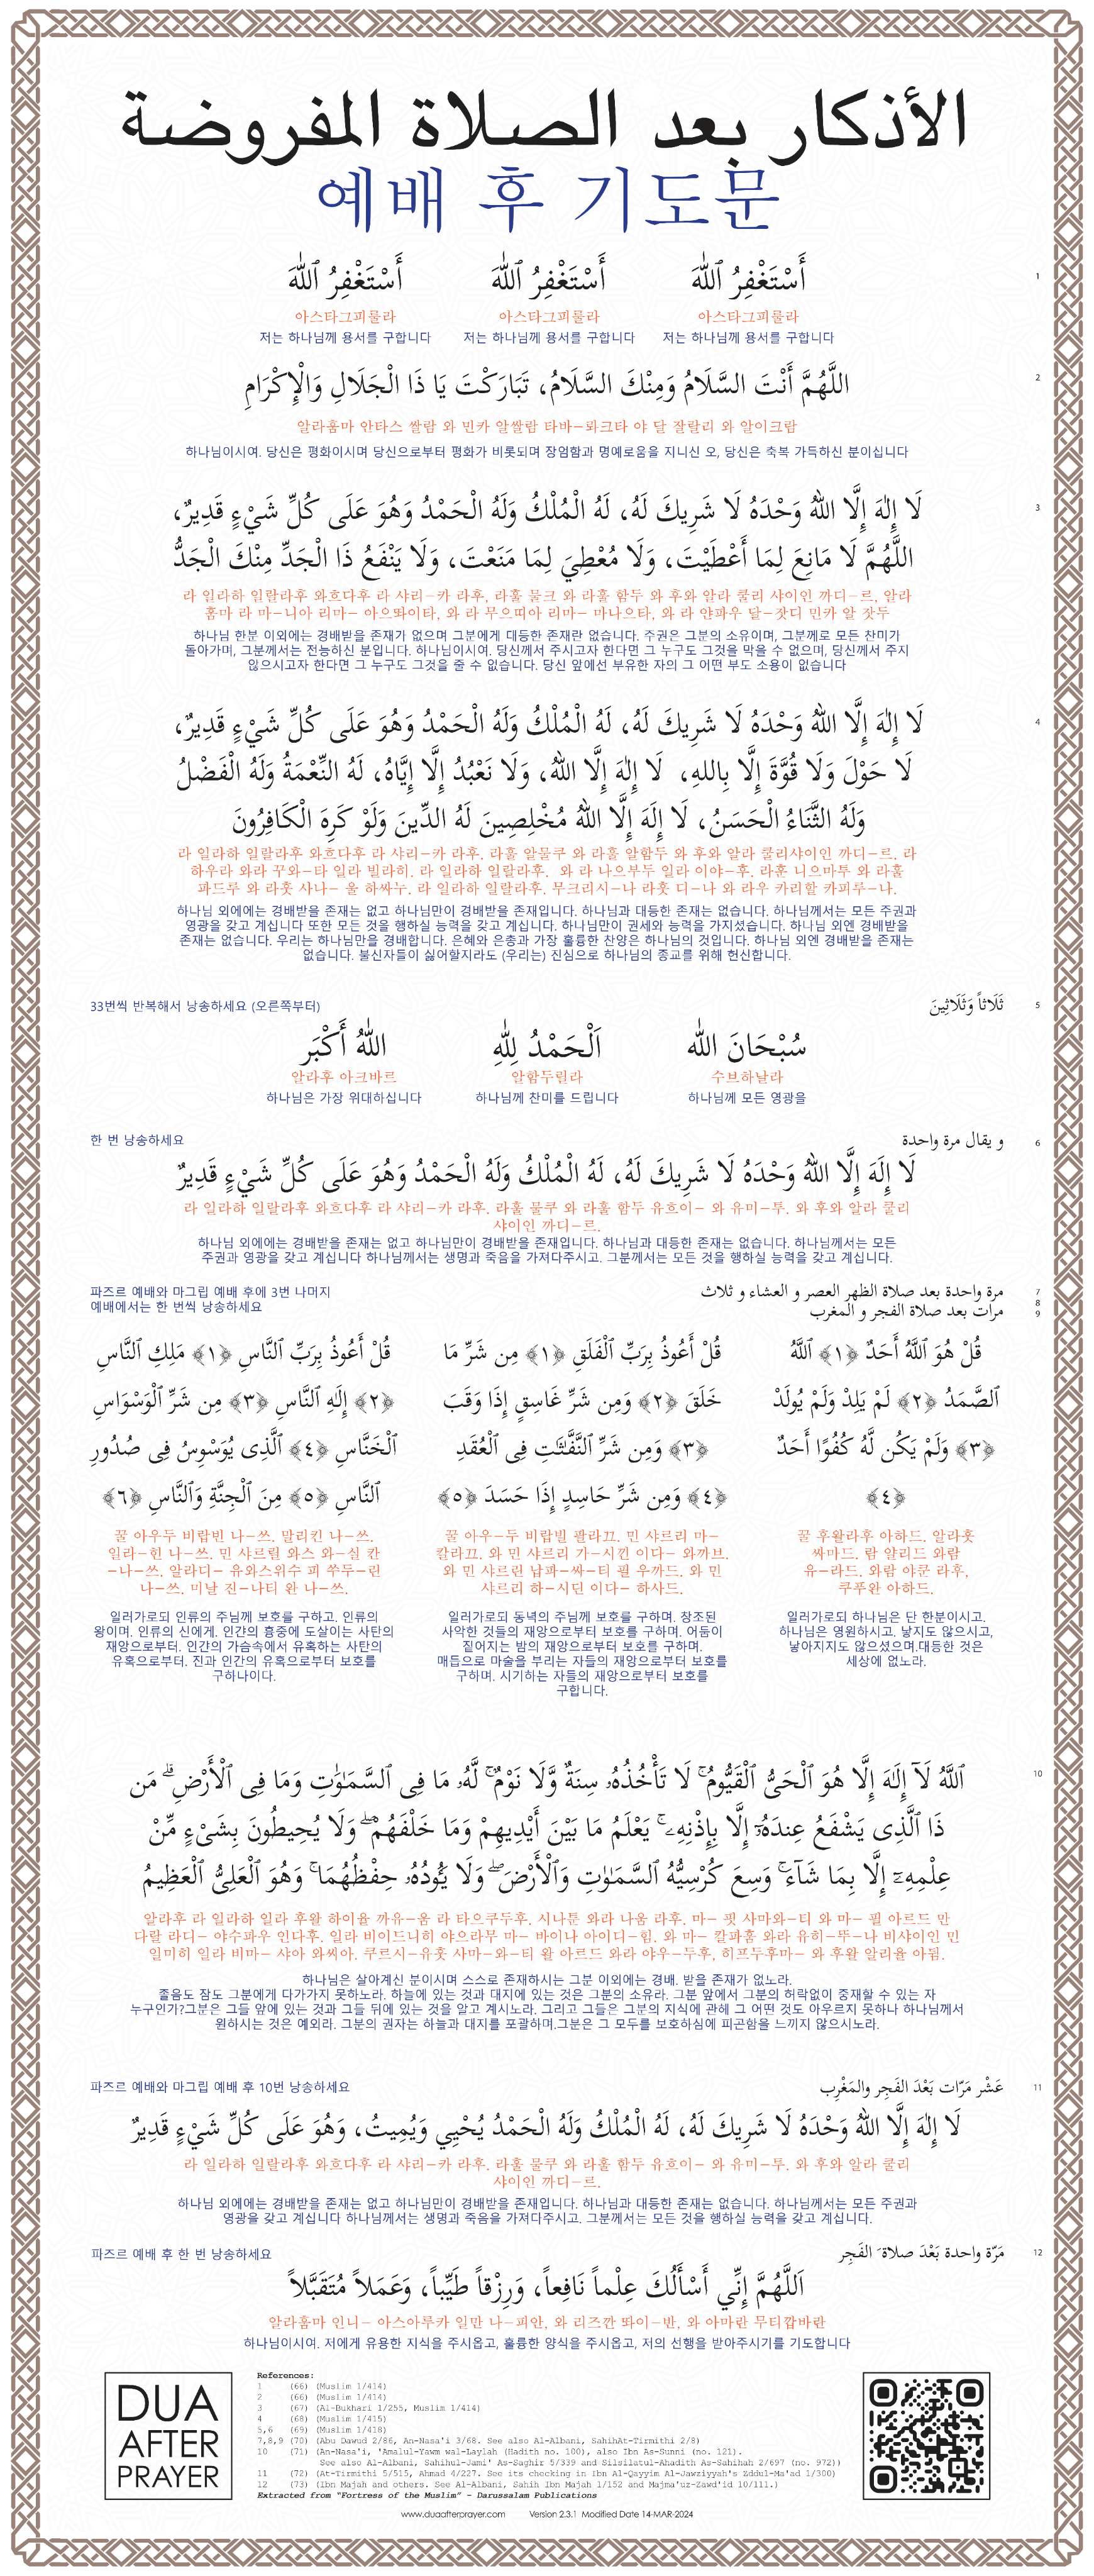 الأذكار بعد الصلاة المفروضة
예배 후 기도문
1
أَسْتَغْفِرُ ٱللَّٰهَ أَسْتَغْفِرُ ٱللَّٰهَ أَسْتَغْفِرُ ٱللَّٰهَ
아스타그피룰라 아스타그피룰라 아스타그피룰라
저는 하나님께 용서를 구합니다 저는 하나님께 용서를 구합니다 저는 하나님께 용서를 구합니다
2
اللَّهُمَّ أَنْتَ السَّلَامُ وَمِنْكَ السَّلَامُ، تَبَارَكْتَ يَا ذَا الْجَلَالِ وَالْإِكْرَامِ
알라훔마 안타스 쌀람 와 민카 알쌀람 타바-롸크타 야 달 잘랄리 와 알이크람
하나님이시여. 당신은 평화이시며 당신으로부터 평화가 비롯되며 장엄함과 명예로움을 지니신 오, 당신은 축복 가득하신 분이십니다
3
لَا إِلٰهَ إِلَّا اللهُ وَحْدَهُ لَا شَرِيكَ لَهُ، لَهُ الْمُلْكُ وَلَهُ الْحَمْدُ وَهُوَ عَلَى كُلِّ شَيْءٍ قَدِيرٌ،
اللَّهُمَّ لَا مَانِعَ لِمَا أَعْطَيْتَ، وَلَا مُعْطِيَ لِمَا مَنَعْتَ، وَلَا يَنْفَعُ ذَا الْجَدِّ مِنْكَ الْجَدُّ
라 일라하 일랄라후 와흐다후 라 샤리-카 라후, 라훌 물크 와 라훌 함두 와 후와 알라 쿨리 샤이인 까디-르, 알라
훔마 라 마-니아 리마- 아으똬이타, 와 라 무으띠아 리마- 마나으타, 와 라 얀파우 달-잣디 민카 알 잣두
하나님 한분 이외에는 경배받을 존재가 없으며 그분에게 대등한 존재란 없습니다. 주권은 그분의 소유이며, 그분께로 모든 찬미가
돌아가며, 그분께서는 전능하신 분입니다. 하나님이시여. 당신께서 주시고자 한다면 그 누구도 그것을 막을 수 없으며, 당신께서 주지
않으시고자 한다면 그 누구도 그것을 줄 수 없습니다. 당신 앞에선 부유한 자의 그 어떤 부도 소용이 없습니다
4
لَا إِلٰهَ إِلَّا اللهُ وَحْدَهُ لَا شَرِيكَ لَهُ، لَهُ الْمُلْكُ وَلَهُ الْحَمْدُ وَهُوَ عَلَى كُلِّ شَيْءٍ قَدِيرٌ،
لَا حَوْلَ وَلَا قُوَّةَ إِلَّا بِاللهِ، لَا إِلٰهَ إِلَّا اللهُ، وَلَا نَعْبُدُ إِلَّا إِيَّاهُ، لَهُ النِّعْمَةُ وَلَهُ الْفَضْلُ
وَلَهُ الثَّنَاءُ الْحَسَنُ، لَا إِلَهَ إِلَّا اللهُ مُخْلِصِينَ لَهُ الدِّينَ وَلَوْ كَرِهَ الْكَافِرُونَ
라 일라하 일랄라후 와흐다후 라 샤리-카 라후. 라훌 알물쿠 와 라훌 알함두 와 후와 알라 쿨리샤이인 까디-르. 라
하우라 와라 꾸와-타 일라 빌라히. 라 일라하 일랄라후. 와 라 나으부두 일라 이야-후. 라훈 니으마투 와 라훌
파드루 와 라훗 사나- 울 하싸누. 라 일라하 일랄라후, 무크리시-나 라훗 디-나 와 라우 카리할 카피루-나.
하나님 외에에는 경배받을 존재는 없고 하나님만이 경배받을 존재입니다. 하나님과 대등한 존재는 없습니다. 하나님께서는 모든 주권과
영광을 갖고 계십니다 또한 모든 것을 행하실 능력을 갖고 계십니다. 하나님만이 권세와 능력을 가지셨습니다. 하나님 외엔 경배받을
존재는 없습니다. 우리는 하나님만을 경배합니다. 은혜와 은총과 가장 훌륭한 찬양은 하나님의 것입니다. 하나님 외엔 경배받을 존재는
없습니다. 불신자들이 싫어할지라도 (우리는) 진심으로 하나님의 종교를 위해 헌신합니다.
33번씩 반복해서 낭송하세요 (오른쪽부터)
ثَلَاثاً وَثَلَاثِينَ 5
سُبْحَانَ اللّٰه اَلْحَمْدُ لِلّٰهِ اللّٰهُ أَكْبَر
알라후 아크바르 알함두릴라 수브하날라
하나님은 가장 위대하십니다 하나님께 찬미를 드립니다 하나님께 모든 영광을
한 번 낭송하세요
و يقال مرة واحدة 6
لَا إِلَهَ إِلَّا اللهُ وَحْدَهُ لَا شَرِيكَ لَهُ، لَهُ الْمُلْكُ وَلَهُ الْحَمْدُ وَهُوَ عَلَى كُلِّ شَيْءٍ قَدِيرٌ
라 일라하 일랄라후 와흐다후 라 샤리-카 라후. 라훌 물쿠 와 라훌 함두 유흐이- 와 유미-투. 와 후와 알라 쿨리
샤이인 까디-르.
하나님 외에에는 경배받을 존재는 없고 하나님만이 경배받을 존재입니다. 하나님과 대등한 존재는 없습니다. 하나님께서는 모든
주권과 영광을 갖고 계십니다 하나님께서는 생명과 죽음을 가져다주시고. 그분께서는 모든 것을 행하실 능력을 갖고 계십니다.
파즈르 예배와 마그립 예배 후에 3번 나머지
예배에서는 한 번씩 낭송하세요
مرة واحدة بعد صلاة الظهر العصر و العشاء و ثلاث
مرات بعد صلاة الفجر و المغرب
7
8
9
قُلْ هُوَ ٱللَّهُ أَحَدٌ ﴿١﴾ ٱللَّهُ
ٱلصَّمَدُ ﴿٢﴾ لَمْ يَلِدْ وَلَمْ يُولَدْ
﴿٣﴾ وَلَمْ يَكُن لَّهُ كُفُوًا أَحَدٌ
﴿٤﴾
꿀 후왈라후 아하드. 알라훗
싸마드. 람 얄리드 와람
유-라드. 와람 야쿤 라후,
쿠푸완 아하드.
일러가로되 하나님은 단 한분이시고.
하나님은 영원하시고. 낳지도 않으시고,
낳아지지도 않으셨으며.대등한 것은
세상에 없노라.
قُلْ أَعُوذُ بِرَبِّ ٱلْفَلَقِ ﴿١﴾ مِن شَرِّ مَا
خَلَقَ ﴿٢﴾ وَمِن شَرِّ غَاسِقٍ إِذَا وَقَبَ
﴿٣﴾ وَمِن شَرِّ ٱلنَّفَّٰثَٰتِ فِى ٱلْعُقَدِ
﴿٤﴾ وَمِن شَرِّ حَاسِدٍ إِذَا حَسَدَ ﴿٥﴾
꿀 아우-두 비랍빌 팔라끄. 민 샤르리 마-
칼라끄. 와 민 샤르리 가-시낀 이다- 와까브.
와 민 샤르린 납파-싸-티 필 우까드. 와 민
샤르리 하-시딘 이다- 하사드.
일러가로되 동녘의 주님께 보호를 구하며. 창조된
사악한 것들의 재앙으로부터 보호를 구하며. 어둠이
짙어지는 밤의 재앙으로부터 보호를 구하며.
매듭으로 마술을 부리는 자들의 재앙으로부터 보호를
구하며. 시기하는 자들의 재앙으로부터 보호를
구합니다.
قُلْ أَعُوذُ بِرَبِّ ٱلنَّاسِ ﴿١﴾ مَلِكِ ٱلنَّاسِ
﴿٢﴾ إِلَٰهِ ٱلنَّاسِ ﴿٣﴾ مِن شَرِّ ٱلْوَسْوَاسِ
ٱلْخَنَّاسِ ﴿٤﴾ ٱلَّذِى يُوَسْوِسُ فِى صُدُورِ
ٱلنَّاسِ ﴿٥﴾ مِنَ ٱلْجِنَّةِ وَٱلنَّاسِ ﴿٦﴾
꿀 아우두 비랍빈 나-쓰. 말리킨 나-쓰.
일라-힌 나-쓰. 민 샤르릴 와스 와-실 칸
-나-쓰. 알라디- 유와스위수 피 쑤두-린
나-쓰. 미날 진-나티 완 나-쓰.
일러가로되 인류의 주님께 보호를 구하고. 인류의
왕이며. 인류의 신에게. 인간의 흉중에 도살이는 사탄의
재앙으로부터. 인간의 가슴속에서 유혹하는 사탄의
유혹으로부터. 진과 인간의 유혹으로부터 보호를
구하나이다.
10
ٱللَّهُ لَآ إِلَٰهَ إِلَّا هُوَ ٱلْحَىُّ ٱلْقَيُّومُ ۚ لَا تَأْخُذُهُۥ سِنَةٌ وَّلَا نَوْمٌ ۚ لَّهُۥ مَا فِى ٱلسَّمَٰوَٰتِ وَمَا فِى ٱلْأَرْضِ ۗ مَن
ذَا ٱلَّذِى يَشْفَعُ عِندَهُۥٓ إِلَّا بِإِذْنِهِۦ ۚ يَعْلَمُ مَا بَيْنَ أَيْدِيهِمْ وَمَا خَلْفَهُمْ ۖ وَلَا يُحِيطُونَ بِشَىْءٍ مِّنْ
عِلْمِهِۦٓ إِلَّا بِمَا شَآءَ ۚ وَسِعَ كُرْسِيُّهُ ٱلسَّمَٰوَٰتِ وَٱلْأَرْضَ ۖ وَلَا يَـُٔودُهُۥ حِفْظُهُمَا ۚ وَهُوَ ٱلْعَلِىُّ ٱلْعَظِيمُ
알라후 라 일라하 일라 후왈 하이율 까유-움 라 타으쿠두후. 시나툰 와라 나움 라후. 마- 핏 사마와-티 와 마- 필 아르드 만
다랄 라디- 야수파우 인다후. 일라 비이드니히 야으라무 마- 바이나 아이디-힘. 와 마- 칼파훔 와라 유히-뚜-나 비샤이인 민
일미히 일라 비마- 샤아 와씨아. 쿠르시-유훗 사마-와-티 왈 아르드 와라 야우-두후, 히프두후마- 와 후왈 알리율 아딤.
하나님은 살아계신 분이시며 스스로 존재하시는 그분 이외에는 경배. 받을 존재가 없노라.
졸음도 잠도 그분에게 다가가지 못하노라. 하늘에 있는 것과 대지에 있는 것은 그분의 소유라. 그분 앞에서 그분의 허락없이 중재할 수 있는 자
누구인가?그분은 그들 앞에 있는 것과 그들 뒤에 있는 것을 알고 계시노라. 그리고 그들은 그분의 지식에 관헤 그 어떤 것도 아우르지 못하나 하나님께서
원하시는 것은 예외라. 그분의 권자는 하늘과 대지를 포괄하며.그분은 그 모두를 보호하심에 피곤함을 느끼지 않으시노라.
파즈르 예배와 마그립 예배 후 10번 낭송하세요
عَشْر مَرّات بَعْدَ الفَجِر والمَغْرِب 11
لَا إِلٰهَ إِلَّا اللهُ وَحْدَهُ لَا شَرِيكَ لَهُ، لَهُ الْمُلْكُ وَلَهُ الْحَمْدُ يُحْيِي وَيُمِيتُ، وَهُوَ عَلَى كُلِّ شَيْءٍ قَدِيرٌ
라 일라하 일랄라후 와흐다후 라 샤리-카 라후. 라훌 물쿠 와 라훌 함두 유흐이- 와 유미-투. 와 후와 알라 쿨리
샤이인 까디-르.
하나님 외에에는 경배받을 존재는 없고 하나님만이 경배받을 존재입니다. 하나님과 대등한 존재는 없습니다. 하나님께서는 모든 주권과
영광을 갖고 계십니다 하나님께서는 생명과 죽음을 가져다주시고. 그분께서는 모든 것을 행하실 능력을 갖고 계십니다.
파즈르 예배 후 한 번 낭송하세요
مَرّة واحدة بَعْدَ صلاة الفَجِر 12
اَللَّهُمَّ إِنِّي أَسْأَلُكَ عِلْماً نَافِعاً، وَرِزْقاً طَيِّباً، وَعَمَلاً مُتَقَبَّلاً
알라훔마 인니- 아스아루카 일만 나-피안, 와 리즈깐 똬이-반, 와 아마란 무티깝바란
하나님이시여. 저에게 유용한 지식을 주시옵고, 훌륭한 양식을 주시옵고, 저의 선행을 받아주시기를 기도합니다
DUA
AFTER
PRAYER
References:
1 (66) (Muslim 1/414)
2 (66) (Muslim 1/414)
3 (67) (Al-Bukhari 1/255, Muslim 1/414)
4 (68) (Muslim 1/415)
5,6 (69) (Muslim 1/418)
7,8,9 (70) (Abu Dawud 2/86, An-Nasa'i 3/68. See also Al-Albani, SahihAt-Tirmithi 2/8)
10 (71) (An-Nasa'i, 'Amalul-Yawm wal-Laylah (Hadith no. 100), also Ibn As-Sunni (no. 121).
See also Al-Albani, Sahihul-Jami' As-Saghir 5/339 and Silsilatul-Ahadith As-Sahihah 2/697 (no. 972))
11 (72) (At-Tirmithi 5/515, Ahmad 4/227. See its checking in Ibn Al-Qayyim Al-Jawziyyah's Zddul-Ma'ad 1/300)
12 (73) (Ibn Majah and others. See Al-Albani, Sahih Ibn Majah 1/152 and Majma'uz-Zawd'id 10/111.)
Extracted from "Fortress of the Muslim" - Darussalam Publications
www.duaafterprayer.com Version 2.3.1 Modified Date 14-MAR-2024